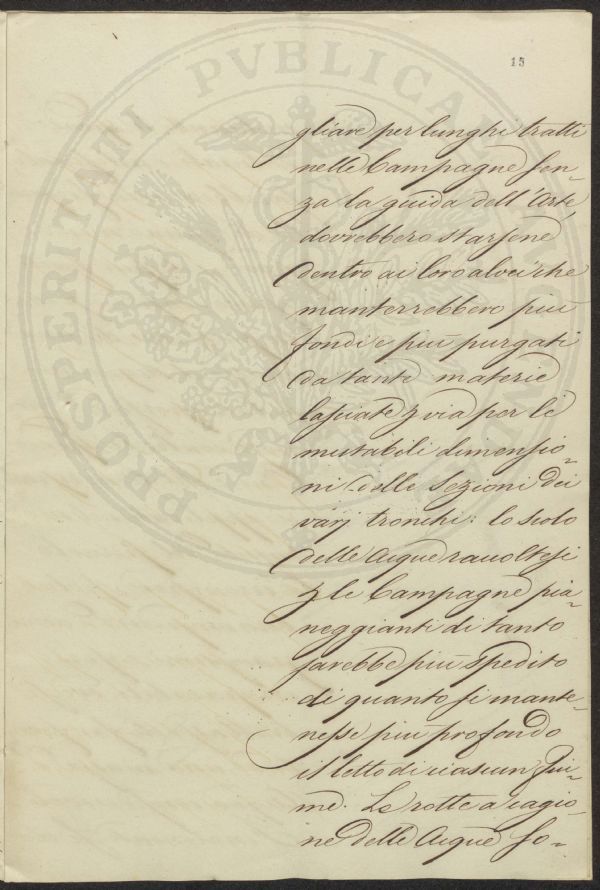 15
PROSPERITATI PVBLICAE
gliare per lunghi tratti
nelle Campagne sen-
za la guida dell'Arte,
dovrebbero starsene
dentro ai loro alvei che
manterrebbero più
fondi e più purgati
da tante materie
lasciate p via per le
mutabili dimensio-
ni delle sezioni dei
varj tronchi: lo scolo
delle Acque raccoltesi
p le Campagne pia-
neggianti di tanto
sarebbe più spedito
di quanto si mante-
nesse più profondo
il letto di ciascun Fiu-
me. Le rotte a cagio-
ne delle Acque so-